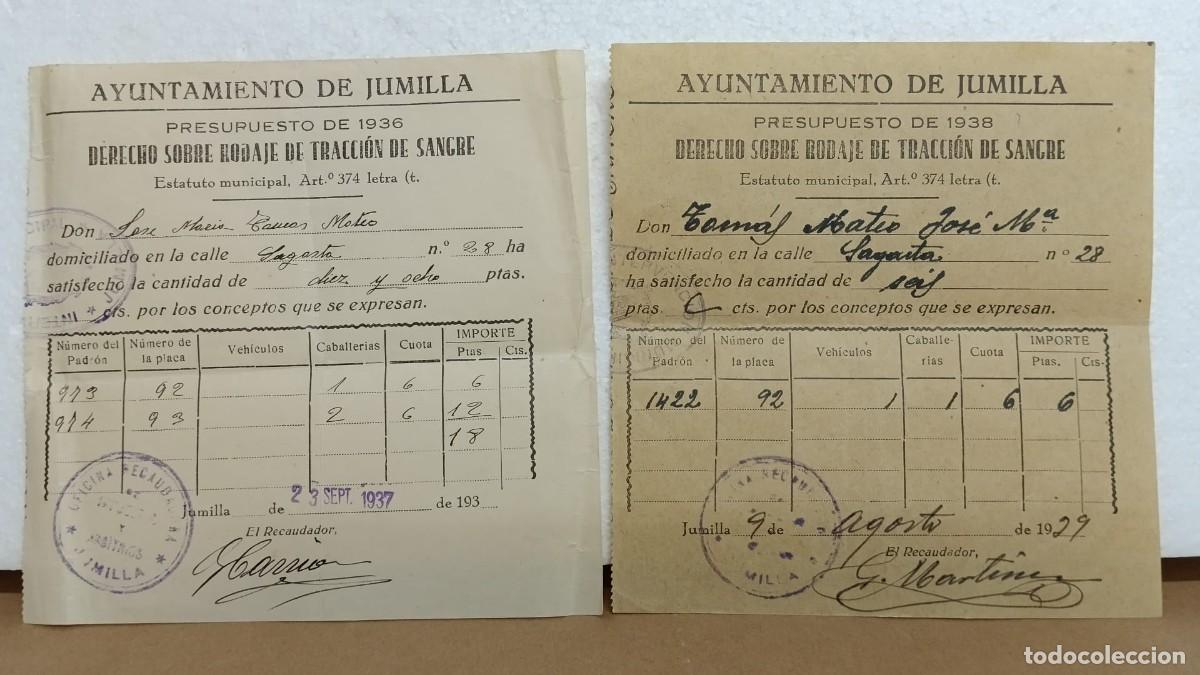 AYUNTAMIENTO DE JUMILLA
PRESUPUESTO DE 1936
DERECHO SOBRE RODAJE DE TRACCIÓN DE SANGRE
Estatuto municipal, Art.º 374 letra (t.
Don Jose Maria Tomas Mateo
domiciliado en la calle Sagasta n.º 28 ha
satisfecho la cantidad de diez y ocho ptas.
cts. por los conceptos que se expresan.
Número del Padrón Número de la placa Vehículos Caballerias Cuota IMPORTE Ptas Cts.
973 92 1 6 6
974 93 2 6 12
18
OFICINA RECAUDADORA
ARBITRIOS
JUMILLA
Jumilla de 23 SEPT. 1937 de 193
El Recaudador,
AYUNTAMIENTO DE JUMILLA
PRESUPUESTO DE 1938
DERECHO SOBRE RODAJE DE TRACCIÓN DE SANGRE
Estatuto municipal, Art.º 374 letra (t.
Don Tomás Mateo José Mª
domiciliado en la calle Sagasta nº 28
ha satisfecho la cantidad de seis
ptas. cts. por los conceptos que se expresan.
Número del Padrón Número de la placa Vehículos Caballerías Cuota IMPORTE Ptas. Cts.
1422 92 1 1 6 6
MILLA
Jumilla 9 de Agosto de 1929
El Recaudador,
G. Martínez
todocoleccion